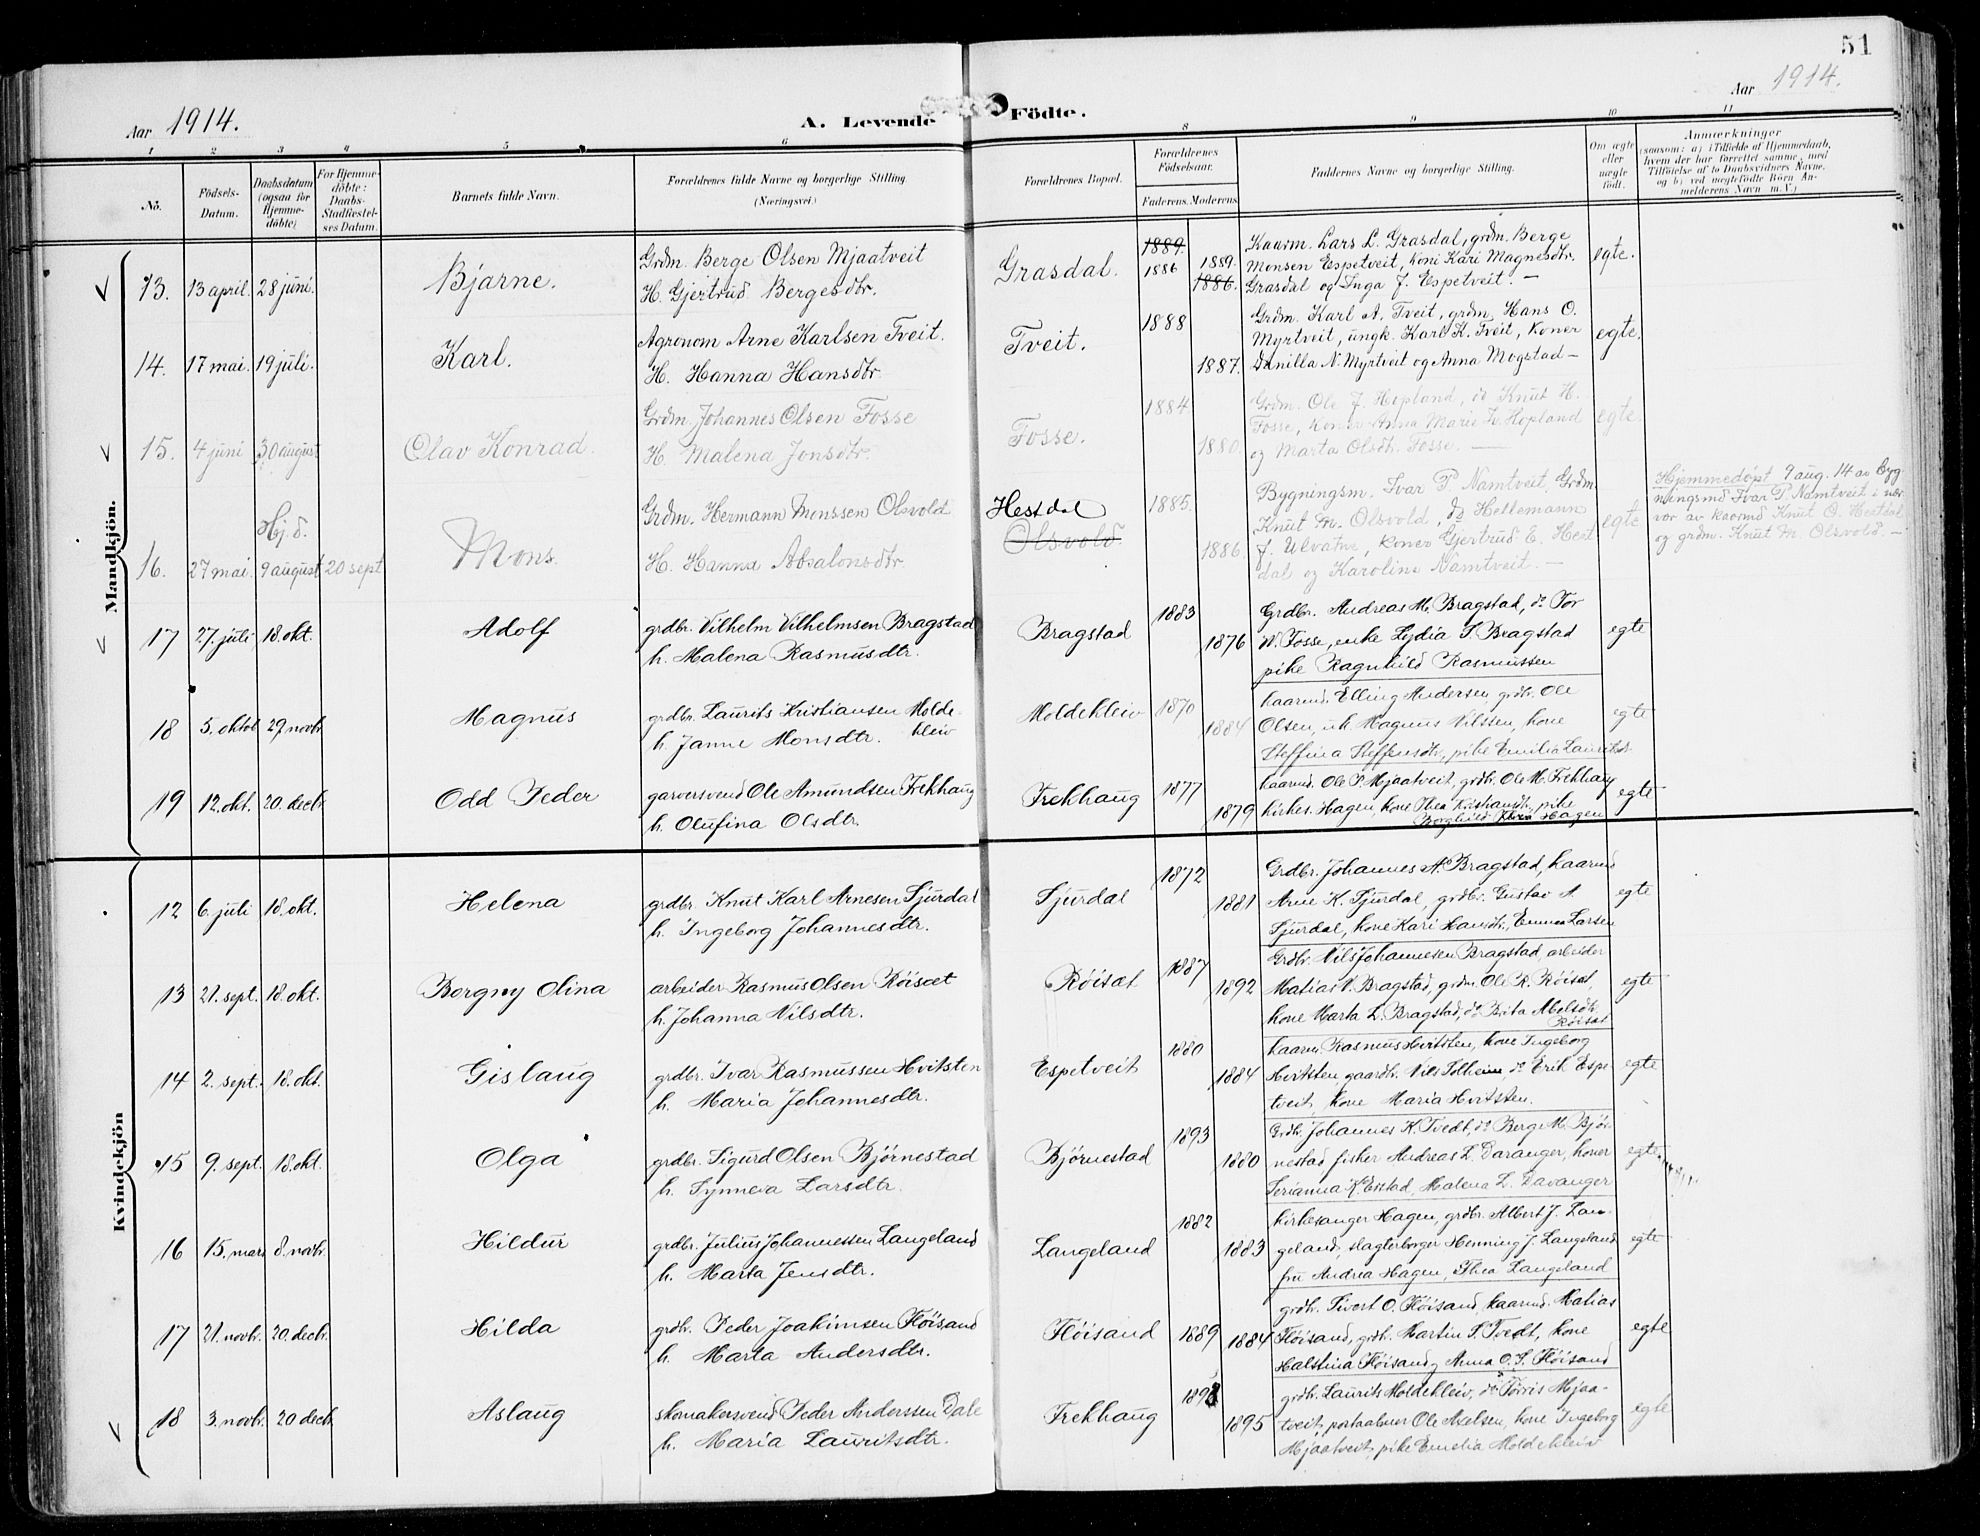 51
Aar 1914.
A. Levende Födte.
Aar 1914.
1 2 3 4 5 6 8 9 10 11
No.
Födsels-
Datum.
Daabsdatum
(ogsaa for
Hjemme-
döbte)
For Hjemme-
döbte:
Daabs-
Stadfæstel-
ses Datum.
Barnets fulde Navn.
Forældrenes fulde Navne og borgerlige Stilling.
(Næringsvei.)
Forældrenes Bopæl.
Forældrenes
Födselsaar.
Faderens. Moderens.
Faddernes Navne og borgerlige Stilling.
Om ægte
eller
uægte
födt.
Anmærkninger
(saasom: a) i Tilfælde af Hjemmedaab,
hvem der har forrettet samme, med
Tilföielse af to Daabsvidners Navne,
og b) ved uægtefödte Börn An-
melderens Navn m. V.)
Mandkjön.
13. 13 april. 28 juni. Bjarne.
Grdm. Berge Olsen Mjaatveit
H. Gjertrud Bergesdtr.
Grasdal.
1889.
1886 1889.
1886.
Kaarm. Lars L. Grasdal, grdm. Berge
Monsen Espetveit, koni Kari Magnesdtr.
Grasdal og Inga J. Espetveit. —
egte.
14. 17 mai. 19 juli. Karl.
Agronom Arne Karlsen Tveit.
H. Hanna Hansdtr.
Tveit.
1888
1887.
Grdm. Karl A. Tveit, grdm. Hans O.
Myrtveit, ungk. Karl K. Tveit, koner
Danilla N. Myrtveit og Anna Mogstad —
egte.
15. 4 juni 30 august Olav Konrad.
Grdm. Johannes Olsen Fosse
H. Malena Jonsdtr.
Fosse.
1884.
1880.
Grdm. Ole J. Hopland, do Knut H.
Fosse, koner Anna Marie Hopland
og Marta Olsdtr. Fosse. —
egte.
16. 27 mai Hj.d. 9 august 20 sept Mons.
Grdm. Hermann Monssen Olsvold
H. Hanna Absalonsdtr.
Hestdal
Olsvold.
1885.
1886.
Bygningsm. Ivar P. Namtveit, Grdm.
Knut M. Olsvold, do Hellemann
J. Ulvatne, koner Gjertrud E. Hest
dal og Karoline Namtveit. —
egte
Hjemmedöpt 9 aug. 14 av byg-
ningsmd Ivar P. Namtveit i nær
vær av kaarmd Knut O. Hestdal
og grdm. Knut M. Olsvold. —
17 27. juli 18. okt. Adolf
grdbr. Vilhelm Vilhelmsen Bragstad
h. Malena Rasmusdtr.
Bragstad
1883
1876
Grdbr. Andreas M. Bragstad, do Tor
N. Fosse, enke Lydia S. Bragstad
pike Ragnhild Rasmussen
egte
18 5. oktob 29 novbr. Magnus
grdbr. Laurits Kristiansen Molde-
kleiv
h. Janne Monsdtr.
Moldekleiv
1870
1884
kaarmd. Elling Andersen, grdbr. Ole
Olsen, uk. Magnus Nilssen, kone
Steffina Steffensdtr, pike Emilia Lauritsd.
egte
19 12. okt. 20. decbr Odd Peder
garversvend Ole Amundsen Frekhaug
h. Olufina Olsdtr.
Frekhaug
1877
1879
kaarmd. Ole P. Mjaatveit, grdbr. Ole M. Frekhaug
kirkes. Hagen, kone Thea Kristiansdtr, pike
Borghild Hagen
egte
Kvindekjön
12 6. juli 18. okt. Helena
grdbr. Knut Karl Arnesen Sjurdal
h. Ingeborg Johannesdtr.
Sjurdal
1872
1881
Grdbr. Johannes A. Bragstad, kaarmd
Arne K. Sjurdal, grdbr. Gustav A.
Sjurdal, kone Kari Hansdtr., Emma Larsen
egte
13 21. sept. 18. okt. Borgny Olina
arbeider Rasmus Olsen Röisæt
h. Johanna Nilsdtr.
Röisæt
1887
1892
Grdbr. Nils Johannesen Bragstad, arbeider
Matias N. Bragstad, grdm. Ole R. Röisæt,
kone Marta L. Bragstad, do Brita Abelsdtr.
Röisæt
egte
14 2. sept. 18. okt. Gislaug
grdbr. Ivar Rasmussen Hvitsten
h. Maria Johannesdtr.
Espetveit
1880
1884
kaarm. Rasmus Hvitsten, kone Ingeborg
Hvitsten, gaardbr. Nils Solheim, do Erik Espe-
tveit, kone Maria Hvitsten.
egte
15 9. sept. 18. okt. Olga
grdbr. Sigurd Olsen Björnestad
h. Synneva Larsdtr.
Björnestad
1893
1880
Grdbr. Johannes K. Tvedt, do Berge M. Björ-
nestad fisker Andreas L. Davanger, koner
Serianna K. Eistad, Malena L. Davanger
egte
16 15. mars 8. novbr. Hildur
grdbr. Julius Johannessen Langeland
h. Marta Jensdtr.
Langeland
1882
1883
kirkesanger Hagen, grdbr. Albert J. Lan-
geland, slagterborger Henning J. Langeland
fru Andrea Hagen, Thea Langeland
egte
17 21. novbr. 20. decbr. Hilda
grdbr. Peder Joakimsen Flöisand
h. Marta Andersdtr.
Flöisand
1889 1884
grdbr. Sivert O. Flöisand, kaarmd. Matias
Flöisand, grdbr. Martin S. Tvedt, kone
Halstina Flöisand, Anna O. S. Flöisand
egte
18 3. novbr. 20 decbr. Aslaug
skomakersvend Peder Anderssen Dale
h. Maria Lauritsdtr.
Frekhaug
1893
1895
grdbr. Laurits Moldekleiv, do Torris Mjaa-
tveit, postaabner Ole Axelsen, kone Ingeborg
Mjaatveit, pike Emelia Moldekleiv
egte